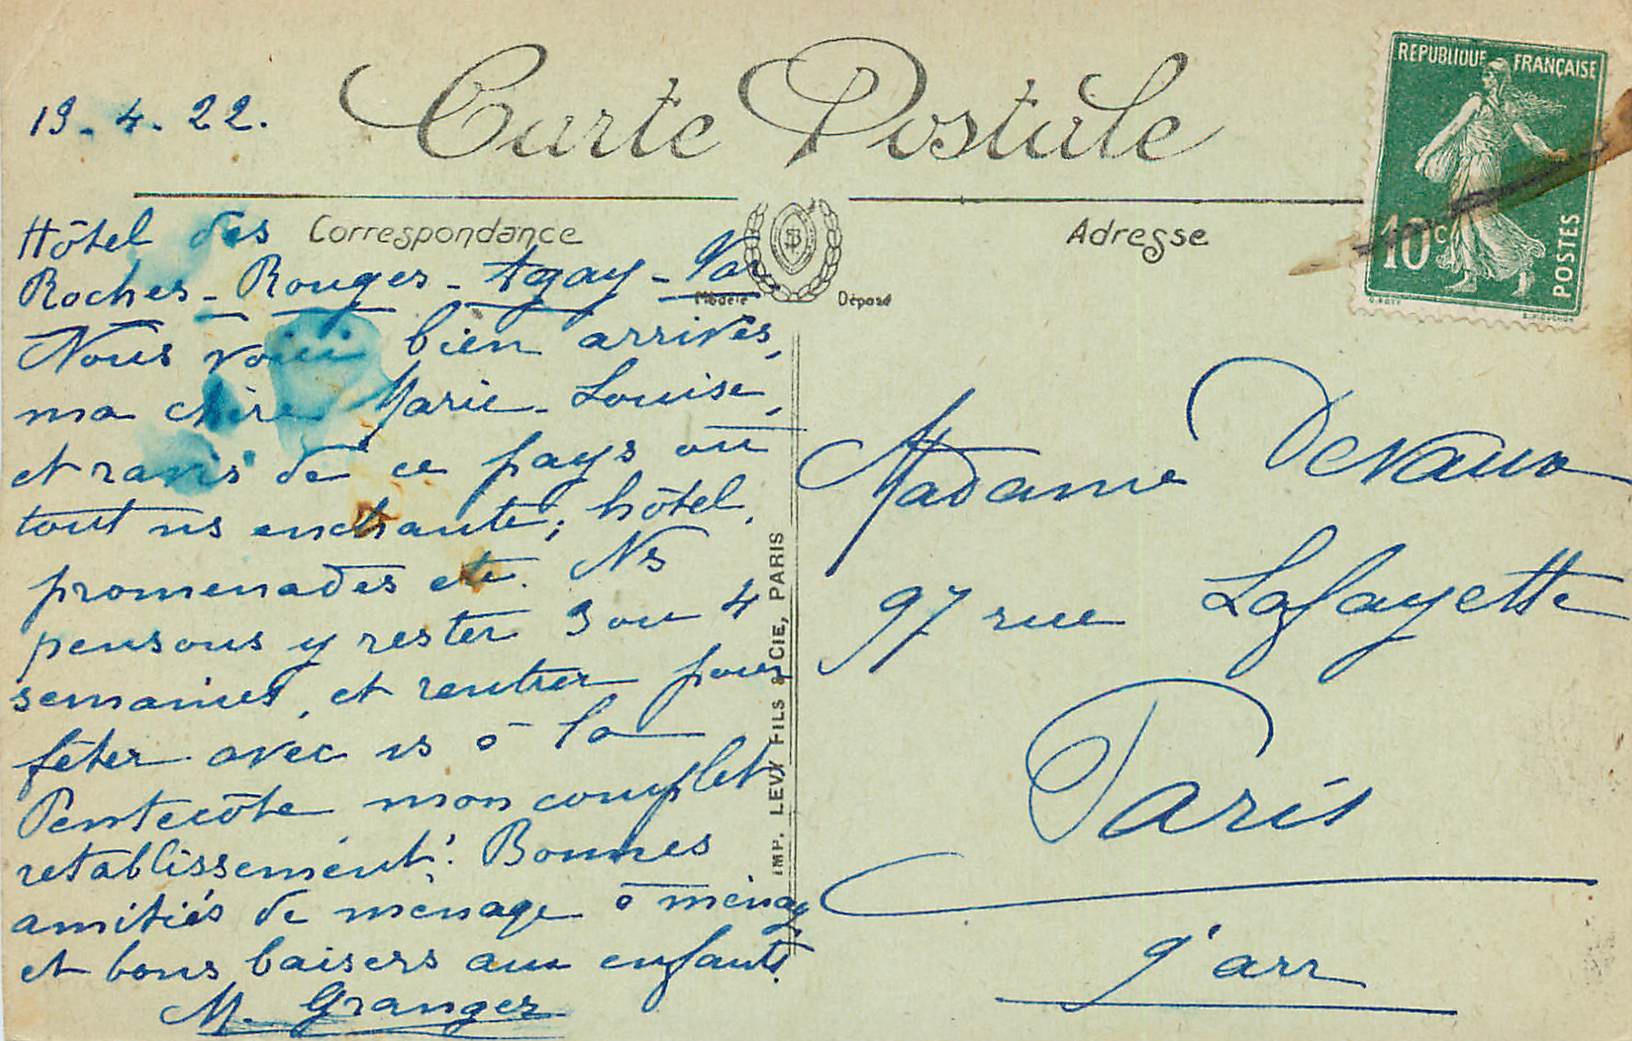 Carte Postale
19.4.22.
RÉPUBLIQUE FRANÇAISE
10c
POSTES
Correspondance
Adresse
Modèle Déposé
Hôtel des
Roches-Rouges-Agay-Var
Nous voici bien arrivés,
ma chère Marie-Louise,
et ravis de ce pays où
tout ns enchante; hôtel,
promenades etc. Ns
pensons y rester 3 ou 4
semaines, et rentrer pour
fêter avec vs à la
Pentecôte mon complet
rétablissement! Bonnes
amitiés de ménage à ménage
et bons baisers aux enfants.
M. Granger
IMP. LEVY FILS & CIE, PARIS
Madame Devaux
97 rue Lafayette
Paris
9' arr